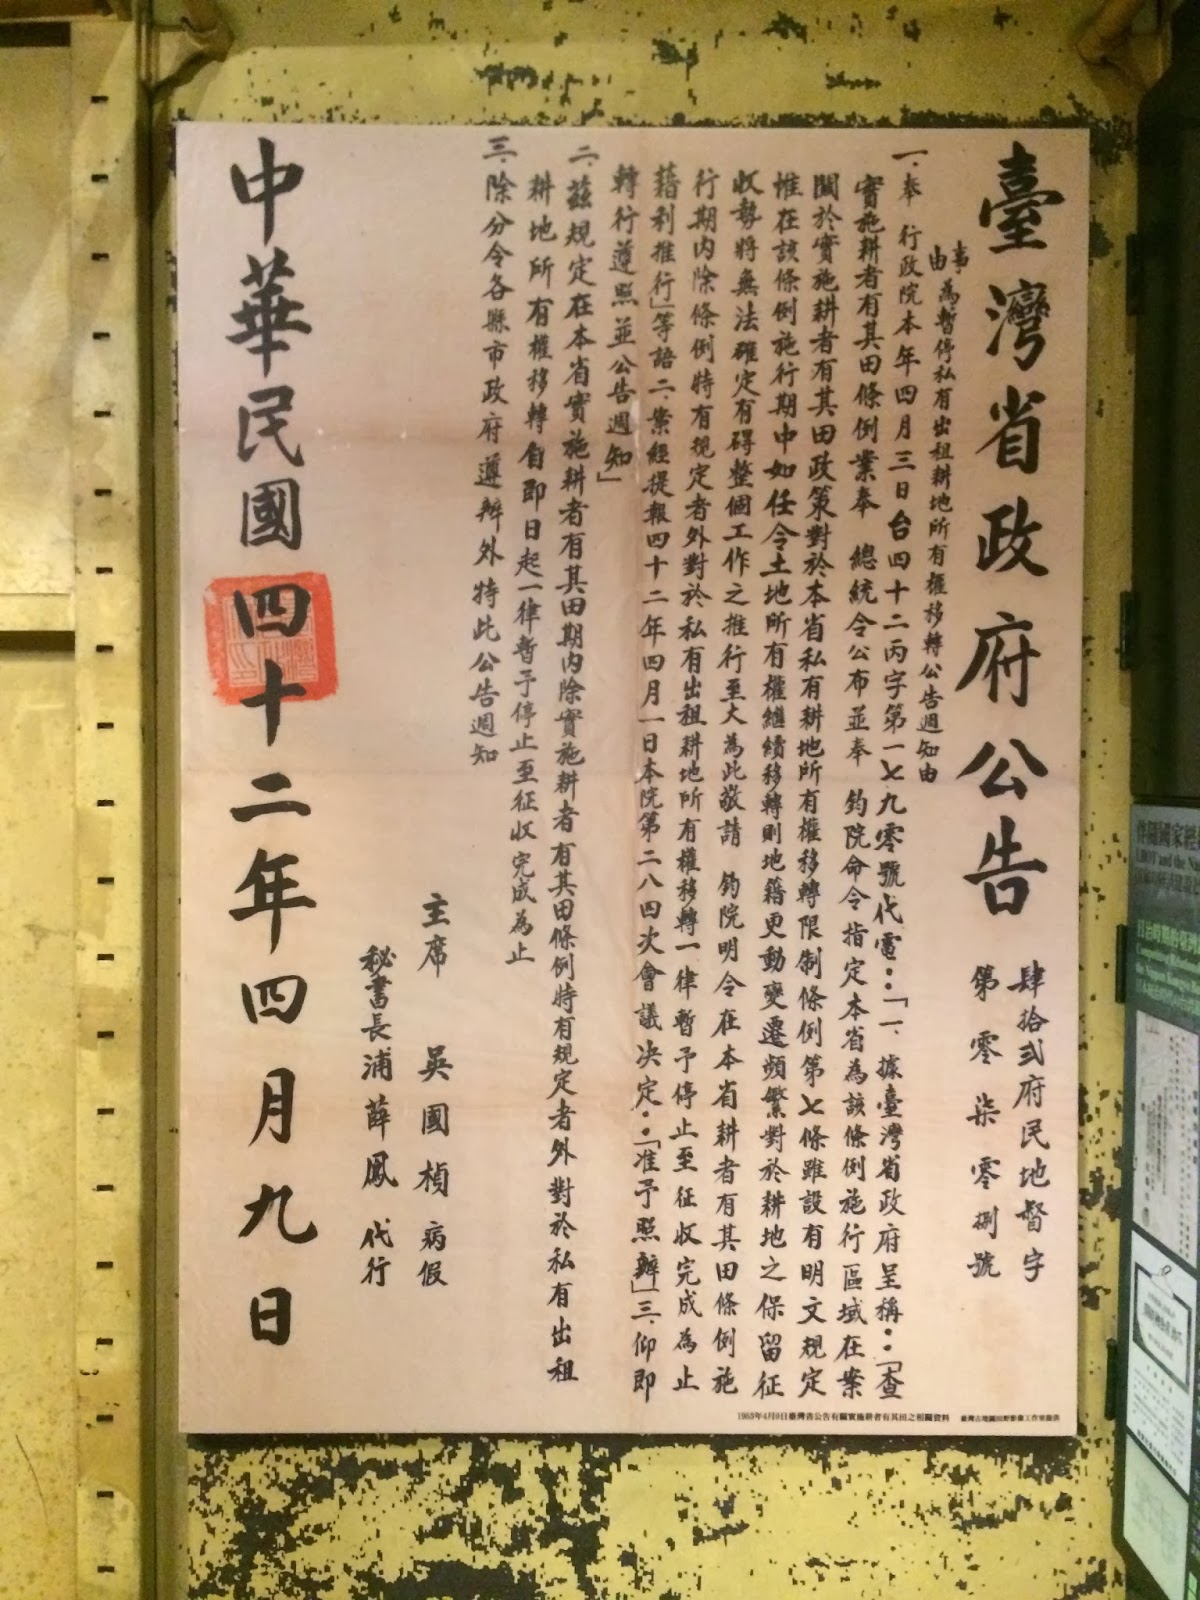 臺灣省政府公告
肆拾弍府民地督字
第零柒零捌號
事由：為暫停私有出租耕地所有權移轉公告週知由
一、奉 行政院本年四月三日台四十二丙字第一七九零號代電：「一、據臺灣省政府呈稱：「查
實施耕者有其田條例業奉 總統令公布並奉 鈞院命令指定本省為該條例施行區域在案
關於實施耕者有其田政策對於本省私有耕地所有權移轉限制條例第七條雖設有明文規定
惟在該條例施行期中如任令土地所有權繼續移轉則地籍更動變遷頻繁對於耕地之保留征
收勢將無法確定有碍整個工作之推行至大為此敬請 鈞院明令在本省耕者有其田條例施
行期內除條例特有規定者外對於私有出租耕地所有權移轉一律暫予停止至征收完成為止
藉利推行」等語二、案經提報四十二年四月一日本院第二八四次會議決定：「准予照辦」三、仰即
轉行遵照並公告週知」
二、茲規定在本省實施耕者有其田期內除實施耕者有其田條例特有規定者外對於私有出租
耕地所有權移轉自即日起一律暫予停止至征收完成為止
三、除分令各縣市政府遵辦外特此公告週知
主席 吳國楨 病假
秘書長浦薛鳳 代行
中華民國四十二年四月九日
1953年4月9日臺灣省公告有關實施耕者有其田之相關資料 臺灣古地圖田野影像工作室提供